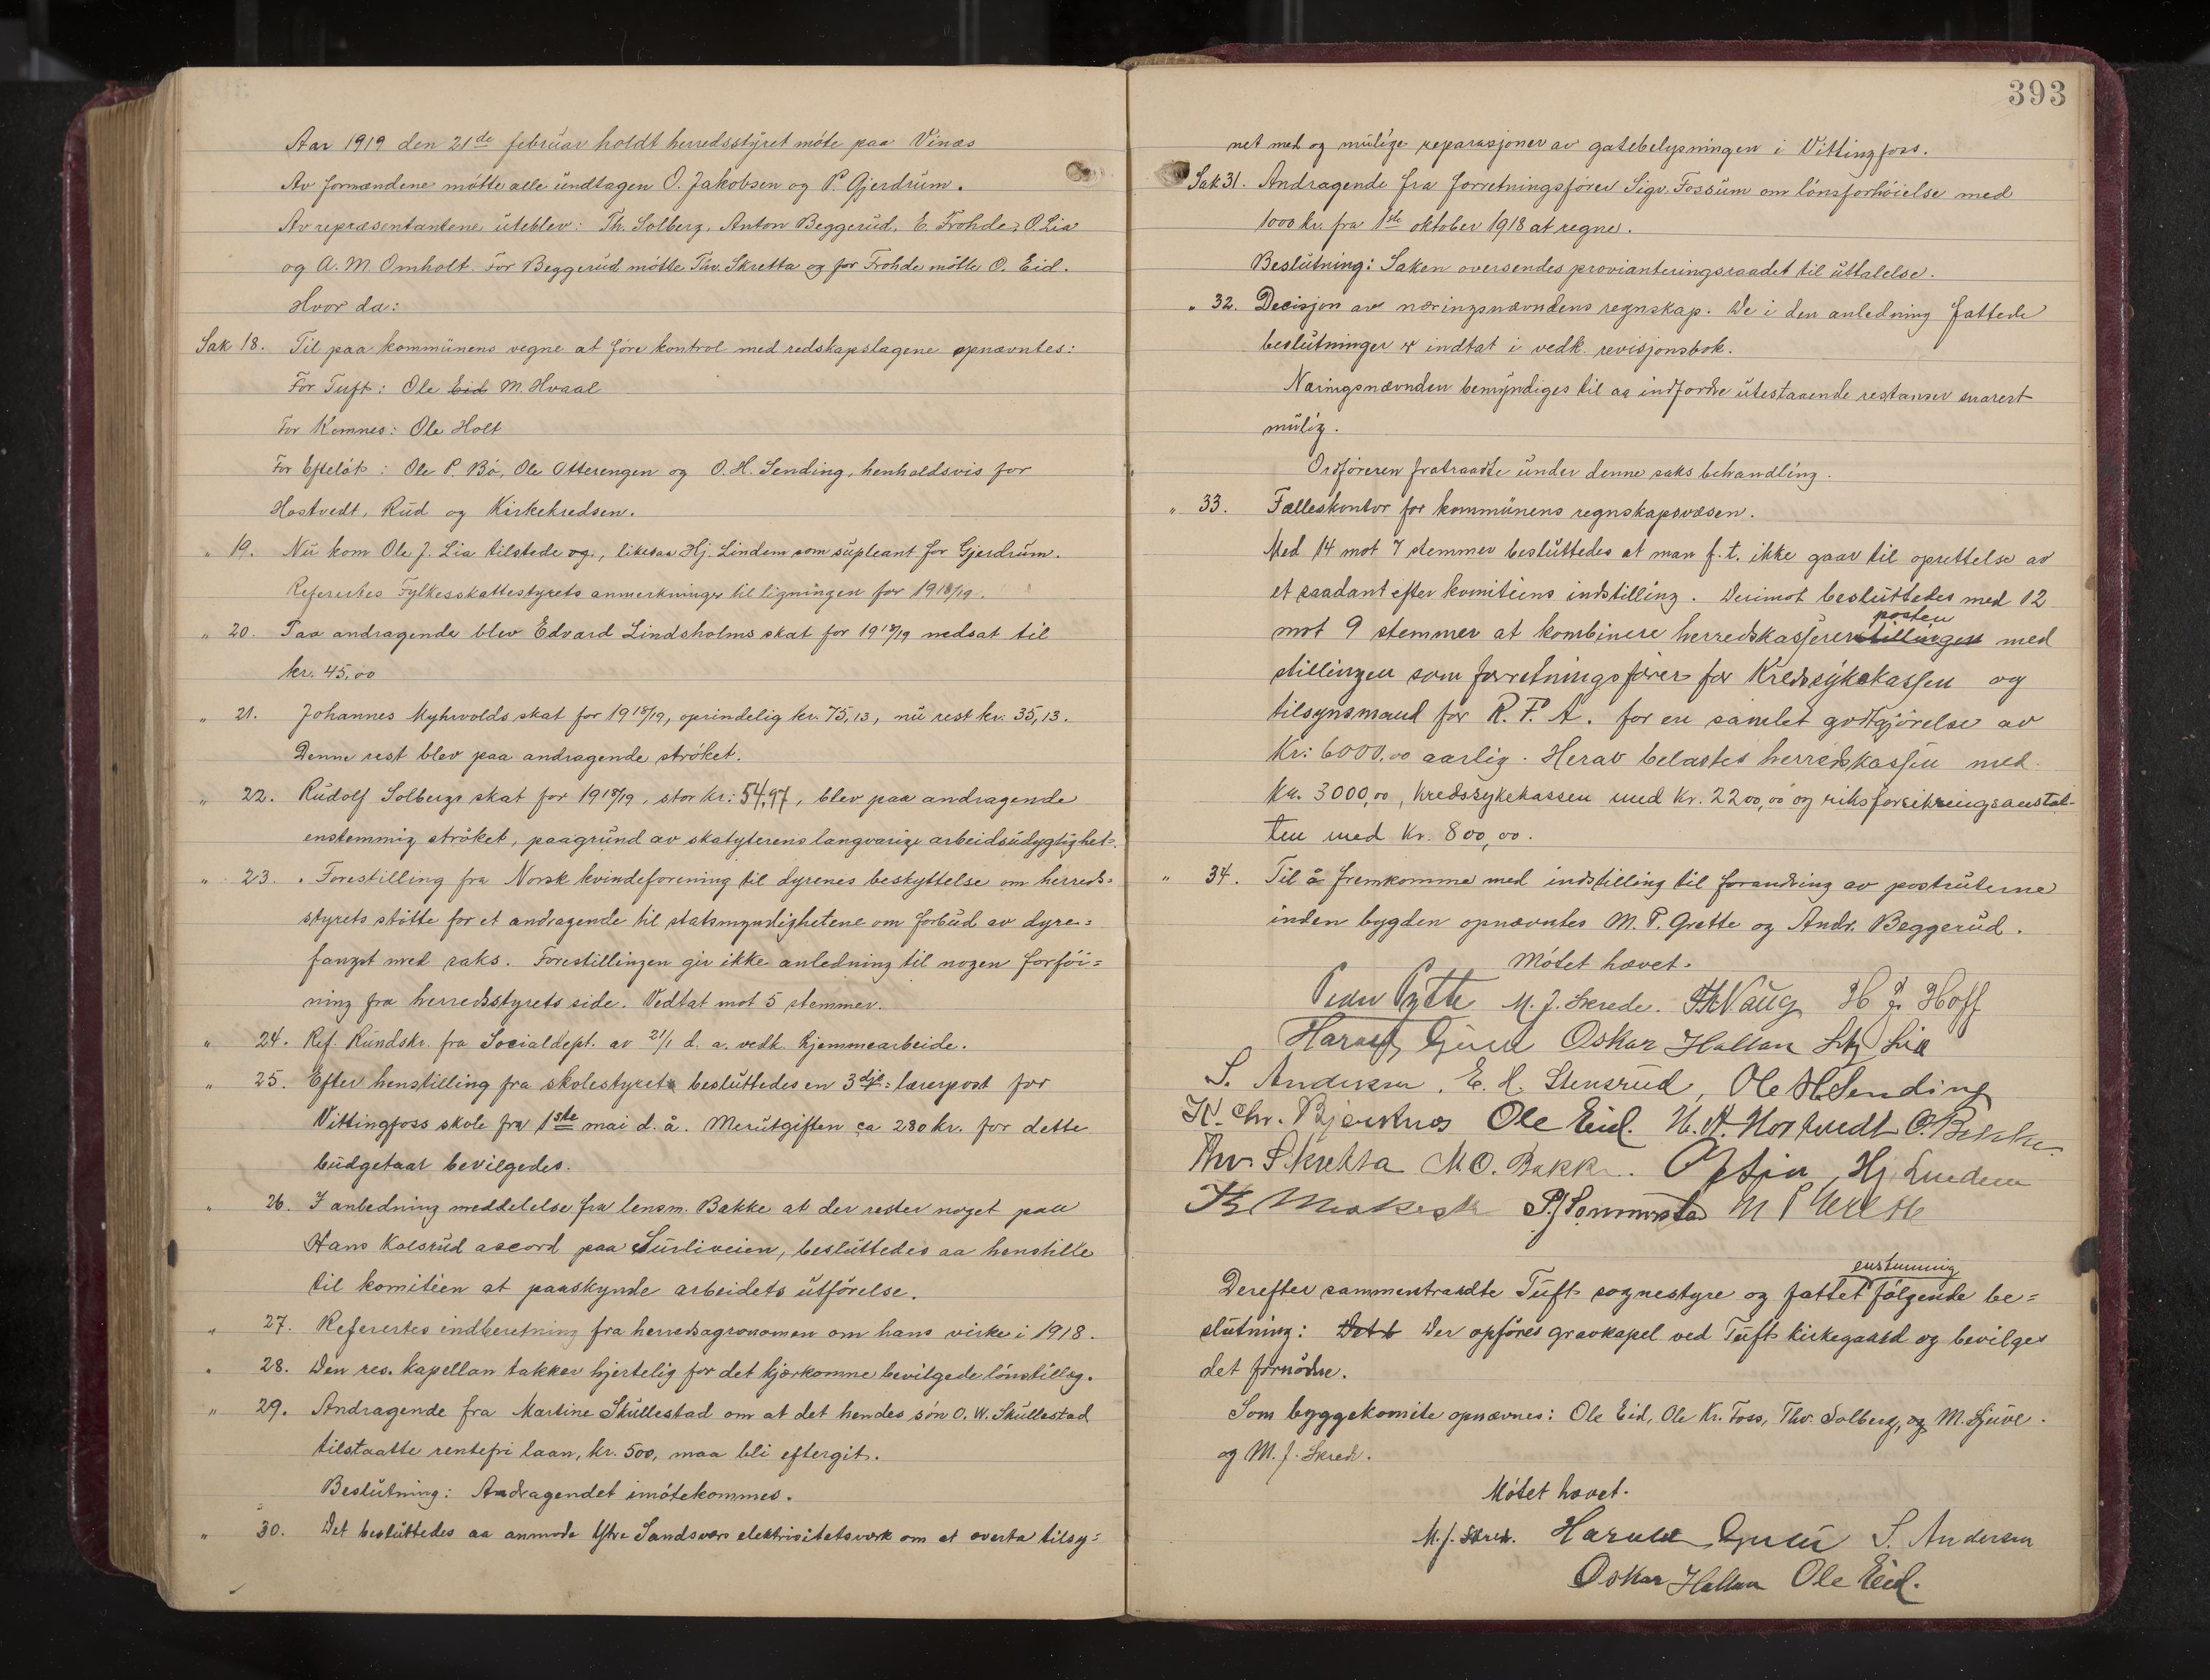 Aar 1919 den 21de februar holdt herredsstyret möte paa Vinæs
Av formændene mötte alle undtagen O. Jakobsen og P. Gjerdrum.
Av repræsentantene uteblev: Th. Solberg, Anton Beggerud, E. Frohde, O. Lia
og A. M. Omholt. For Beggerud mötte Thv. Skretta og for Frohde mötte O. Eid.
Hvor da:
Sak 18. Til paa kommunens vegne at före kontrol med redskapslagene opnævntes:
For Tuft: Ole Eid M. Hvaal
For Komnes: Ole Holt
For Efteløt: Ole P. Bö, Ole Otterengen og O. H. Sending, henholdsvis for
Hostvedt, Rud og Kirkekredsen.
" 19. Nu kom Ole J. Lia tilstede og, likesaa Hj. Lindem som supleant for Gjerdrum.
Referertes Fylkesskattestyrets anmerkninger til ligningen for 1918/19.
" 20. Paa andragende blev Edvard Lindsholms skat for 1918/19 nedsat til
kr. 45,00
" 21. Johannes Myhrvolds skat for 1918/19, oprindelig kr. 75,13, nu rest kr. 35,13.
Denne rest blev paa andragende ströket.
" 22. Rudolf Solbergs skat for 1918/19, stor kr: 54,97, blev paa andragende
enstemmig ströket, paagrund av skatyterens langvarige arbeidsudygtighet.
" 23. Forestilling fra Norsk kvindeforening til dyrenes beskyttelse om herreds=
styrets stötte for et andragende til statsmyndighetene om forbud av dyre=
fangst med saks. Forestillingen gir ikke anledning til nogen forföi=
ning fra herredsstyrets side. Vedtat mot 5 stemmer.
" 24. Ref. Rundskr. fra Socialdept. av 21/1 d. a. vedk. hjemmearbeide.
" 25. Efter henstilling fra skolestyret besluttedes en 3dje= lærerpost for
Vittingfoss skole fra 1ste mai d. å. Merutgiften ca 280 kr. for dette
budgetaar bevilgedes.
" 26. I anledning meddelelse fra lensm. Bakke at der rester noget paa
Hans Kolsrud ascord paa Surliveien, besluttedes aa henstille
til komitéen at paaskynde arbeidets utförelse.
" 27. Refererтes indberetning fra herredsagronomen om hans virke i 1918.
" 28. Den res. kapellan takker hjertelig for det kjærkomne bevilgede lönstillæg.
" 29. Andragende fra Martine Skullestad om at det hendes sön O. W. Skullestad
tilstaatte rentefri laan, kr. 500, maa bli eftergit.
Beslutning: Andragendet imötekommes.
" 30. Det besluttedes aa anmode Ytre Sandsvær elektricitetsverk om at overta tilsy=
393
net med og mulige reparasjoner av gatebelysningen i Vittingfoss.
Sak 31. Andragende fra forretningsförer Sigv. Fossum om lönsforhöielse med
1000 kr. fra 1ste oktober 1918 at regne.
Beslutning: Saken oversendes provianteringsraadet til uttalelse.
" 32. Decisjon av næringsnævndens regnskap. De i den anledning fattede
beslutninger er indtat i vedk. revisjonsbok.
Næringsnævnden bemyndiges til aa indfordre utestaaende restanser snarest
mulig.
Ordföreren fratraadte under denne saks behandling.
" 33. Fælleskontor for kommunens regnskapsvæsen.
Med 14 mot 7 stemmer besluttedes at man f. t. ikke gaar til oprettelse av
et saadant efter komitéens indstilling. Derimot besluttedes med 12
posten
mot 9 stemmer at kombinere herredskasserer stillingen med
stillingen som forretningsförer for Kredssykekassen og
tilsynsmand for R. F. A. for en samlet godtgjörelse av
Kr: 6000,00 aarlig. Herav belastes herredskassen med
kr. 3000,00, kredssykekassen med kr. 2200,00 og riksforsikringsanstal-
ten med kr. 800,00.
" 34. Til å fremkomme med indstilling til forandring av postruterne
inden bygden opnævntes M. P. Grette og Andr. Beggerud.
Mötet hævet.
M. J. Skrede. H. J. Hoff
Oskar Hallan Lia
S. Andersen, E. H. Stensrud, Ole H Sending
K. Chr. Bjerknes Ole Eid. H. A. Hostvedt O. Bakke
Thv. Skretta M O. Bakke. Hj. Lindem
M P Grette
enstemmig
Derefter sammentraadte Tuft sognestyre og fattet fölgende be=
slutning: Det b Der opföres gravkapel ved Tuft kirkegaard og bevilges
det fornödne.
Som byggekomite opnævnes: Ole Eid, Ole Kr. Foss, Thv. Solberg, og M. Gjuve.
og M. J. Skrede.
Mötet hævet.
M. J. Skrede. Harald S. Andersen
Oskar Hallan Ole Eid.